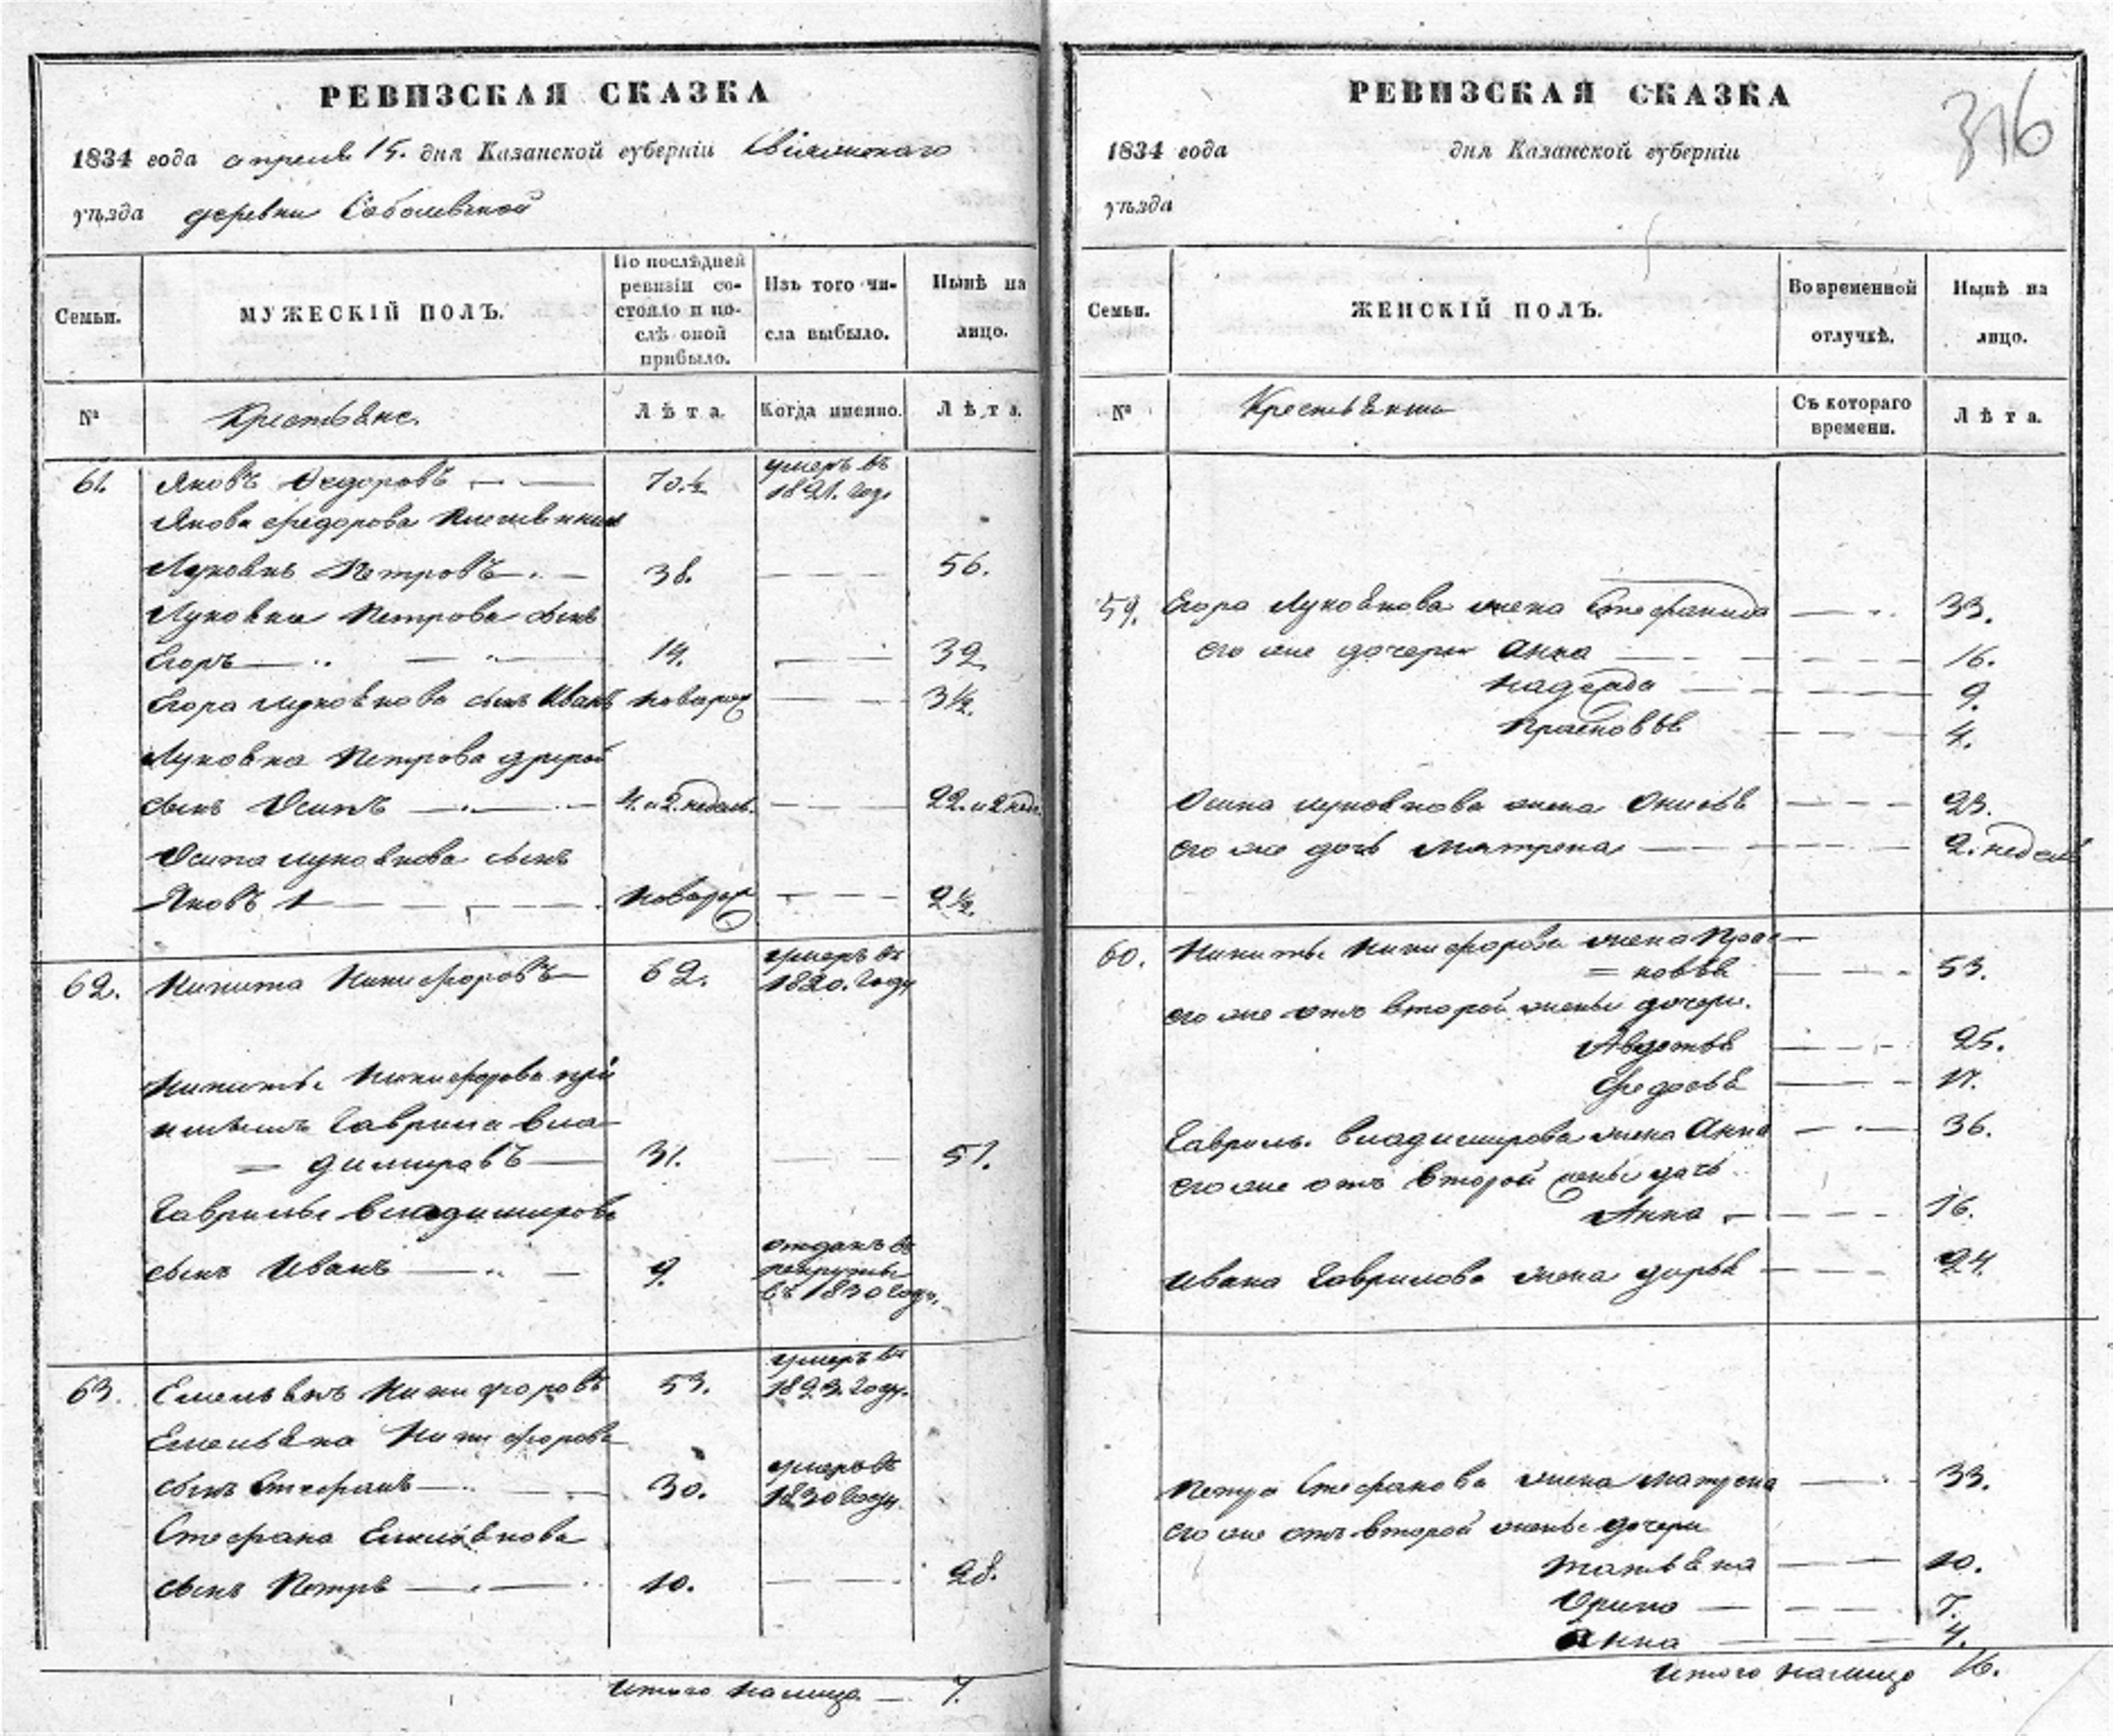 РЕВИЗСКАЯ СКАЗКА
1834 года апреля 15. дня Казанской губерніи Свіяжскаго
уѣзда деревни Соболевской
Семьи.
МУЖЕСКІЙ ПОЛЪ.
По послѣдней
ревизіи со-
стояло и по-
слѣ оной
прибыло.
Изъ того чи-
сла выбыло.
Нынѣ на
лицо.
№
Крестьяне.
Лѣта.
Когда именно.
Лѣта.
61. Яковъ Федоровъ 70.½ умеръ въ
1821. году
Якова Федорова племянникъ
Лукоянъ Петровъ 38. 56.
Лукояна Петрова сынъ
Егоръ 14. 32
Егора Лукоянова сынъ Иванъ новорож 3½.
Лукояна Петрова другой
сынъ Осипъ 4. и 2. недель. 22. и 2 нед.
Осипа Лукоянова сынъ
Яковъ 1 новорож 2½.
62. Никита Никифоровъ 62. умеръ въ
1820. году
Никиты Никифорова прі
емышъ Гаврила Вла
= димировъ 31. 51.
Гаврилы Владимирова
сынъ Иванъ 9. отданъ въ
рекруты
въ 1830 году.
63. Емельянъ Никифоровъ 53. умеръ въ
1823. году.
Емельяна Никифорова
сынъ Стефанъ 30. умеръ въ
1830 году.
Стефана Емельянова
сынъ Петръ 10. 28.
Итого налицо 7.
РЕВИЗСКАЯ СКАЗКА
316
1834 года дня Казанской губерніи
уѣзда
Семьи.
ЖЕНСКІЙ ПОЛЪ.
Во временной
отлучкѣ.
Нынѣ на
лицо.
№
Крестьянки
Съ котораго
времени.
Лѣта.
59. Егора Лукоянова жена Стефанида 33.
его же дочери Анна 16.
Надежда 9.
Прасковья 4.
Осипа Лукоянова жена Онисья 23.
его же дочь Матрена 2. недель
60. Никиты Никифорова жена Прас
= ковья 53.
его же отъ второй жены дочери.
Авдотья 25.
Федосья 17.
Гаврилы Владимирова жена Анна 36.
его же отъ второй жены дочь
Анна 16.
Ивана Гаврилова жена Дарья 24.
Петра Стефанова жена Матрена 33.
его же отъ второй жены дочери
Татьяна 10.
Орина 7.
Анна 4.
Итого налицо 16.